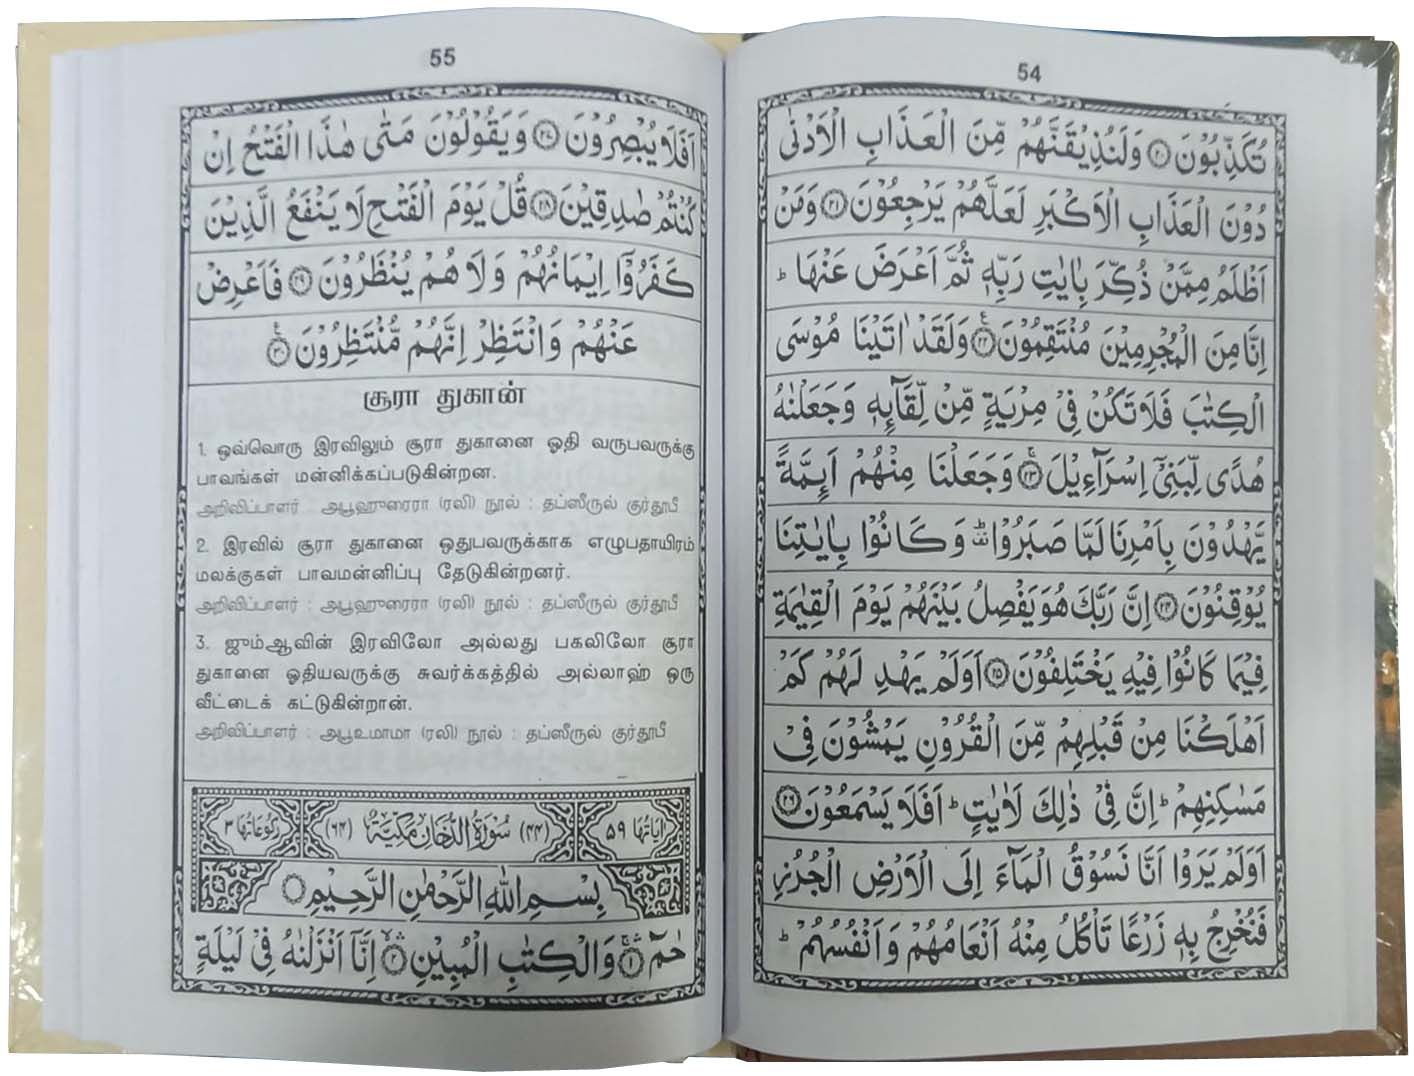 54
تُكَذِّبُوْنَ ۝۲۰ وَلَنُذِيْقَنَّهُمْ مِّنَ الْعَذَابِ الْاَدْنٰى
دُوْنَ الْعَذَابِ الْاَكْبَرِ لَعَلَّهُمْ يَرْجِعُوْنَ ۝۲۱ وَمَنْ
اَظْلَمُ مِمَّنْ ذُكِّرَ بِاٰيٰتِ رَبِّهٖ ثُمَّ اَعْرَضَ عَنْهَا ؕ
اِنَّا مِنَ الْمُجْرِمِيْنَ مُنْتَقِمُوْنَ ۝۲۲ وَلَقَدْ اٰتَيْنَا مُوْسَى
الْكِتٰبَ فَلَا تَكُنْ فِيْ مِرْيَةٍ مِّنْ لِّقَآئِهٖ وَجَعَلْنٰهُ
هُدًى لِّبَنِيْٓ اِسْرَآءِيْلَ ۝۲۳ وَجَعَلْنَا مِنْهُمْ اَىِٕمَّةً
يَّهْدُوْنَ بِاَمْرِنَا لَمَّا صَبَرُوْا ؕ وَكَانُوْا بِاٰيٰتِنَا
يُوْقِنُوْنَ ۝۲۴ اِنَّ رَبَّكَ هُوَ يَفْصِلُ بَيْنَهُمْ يَوْمَ الْقِيٰمَةِ
فِيْمَا كَانُوْا فِيْهِ يَخْتَلِفُوْنَ ۝۲۵ اَوَلَمْ يَهْدِ لَهُمْ كَمْ
اَهْلَكْنَا مِنْ قَبْلِهِمْ مِّنَ الْقُرُوْنِ يَمْشُوْنَ فِيْ
مَسٰكِنِهِمْ ؕ اِنَّ فِيْ ذٰلِكَ لَاٰيٰتٍ ؕ اَفَلَا يَسْمَعُوْنَ ۝۲۶
اَوَلَمْ يَرَوْا اَنَّا نَسُوْقُ الْمَآءَ اِلَى الْاَرْضِ الْجُرُزِ
فَنُخْرِجُ بِهٖ زَرْعًا تَاْكُلُ مِنْهُ اَنْعَامُهُمْ وَاَنْفُسُهُمْ ؕ
55
اَفَلَا يُبْصِرُوْنَ ۝۲۷ وَيَقُوْلُوْنَ مَتٰى هٰذَا الْفَتْحُ اِنْ
كُنْتُمْ صٰدِقِيْنَ ۝۲۸ قُلْ يَوْمَ الْفَتْحِ لَا يَنْفَعُ الَّذِيْنَ
كَفَرُوْٓا اِيْمَانُهُمْ وَلَا هُمْ يُنْظَرُوْنَ ۝۲۹ فَاَعْرِضْ
عَنْهُمْ وَانْتَظِرْ اِنَّهُمْ مُّنْتَظِرُوْنَ ۝۳۰
சூரா துகான்
1. ஒவ்வொரு இரவிலும் சூரா துகானை ஓதி வருபவருக்கு
பாவங்கள் மன்னிக்கப்படுகின்றன.
அறிவிப்பாளர் : அபூஹுரைரா (ரலி) நூல் : தப்ஸீருல் குர்தூபீ
2. இரவில் சூரா துகானை ஒதுபவருக்காக எழுபதாயிரம்
மலக்குகள் பாவமன்னிப்பு தேடுகின்றனர்.
அறிவிப்பாளர் : அபூஹுரைரா (ரலி) நூல் : தப்ஸீருல் குர்தூபீ
3. ஜும்ஆவின் இரவிலோ அல்லது பகலிலோ சூரா
துகானை ஓதியவருக்கு சுவர்க்கத்தில் அல்லாஹ் ஒரு
வீட்டைக் கட்டுகின்றான்.
அறிவிப்பாளர் : அபூஉமாமா (ரலி) நூல் : தப்ஸீருல் குர்தூபீ
اٰيَاتُهَا ۵۹ (۴۴) سُوْرَةُ الدُّخَانِ مَكِّيَّةٌ (۶۴) رُكُوْعَاتُهَا ۳
بِسْمِ اللّٰهِ الرَّحْمٰنِ الرَّحِيْمِ
حٰمٓ ۝۱ وَالْكِتٰبِ الْمُبِيْنِ ۝۲ اِنَّآ اَنْزَلْنٰهُ فِيْ لَيْلَةٍ